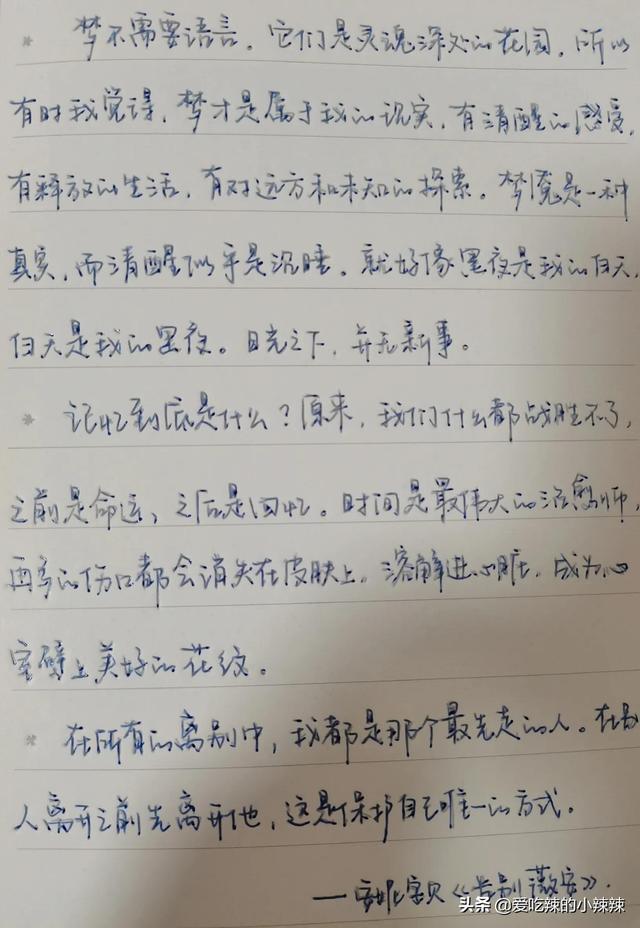 * 梦不需要语言。它们是灵魂深处的花园。所以
有时我觉得,梦才是属于我的现实,有清醒的感受,
有释放的生活,有对远方和未知的探索。梦魇是一种
真实,而清醒似乎是沉睡。就好像黑夜是我的白天,
白天是我的黑夜。日光之下,并无新事。
* 记忆到底是什么?原来,我们什么都战胜不了,
之前是命运,之后是回忆。时间是最伟大的治愈师,
再多的伤口都会消失在皮肤上。溶解进心脏,成为心
室壁上美好的花纹。
* 在所有的离别中,我都是那个最先走的人。在别
人离开之前先离开他,这是保护自己唯一的方式。
——安妮宝贝《告别薇安》.
头条 @爱吃辣的小辣辣